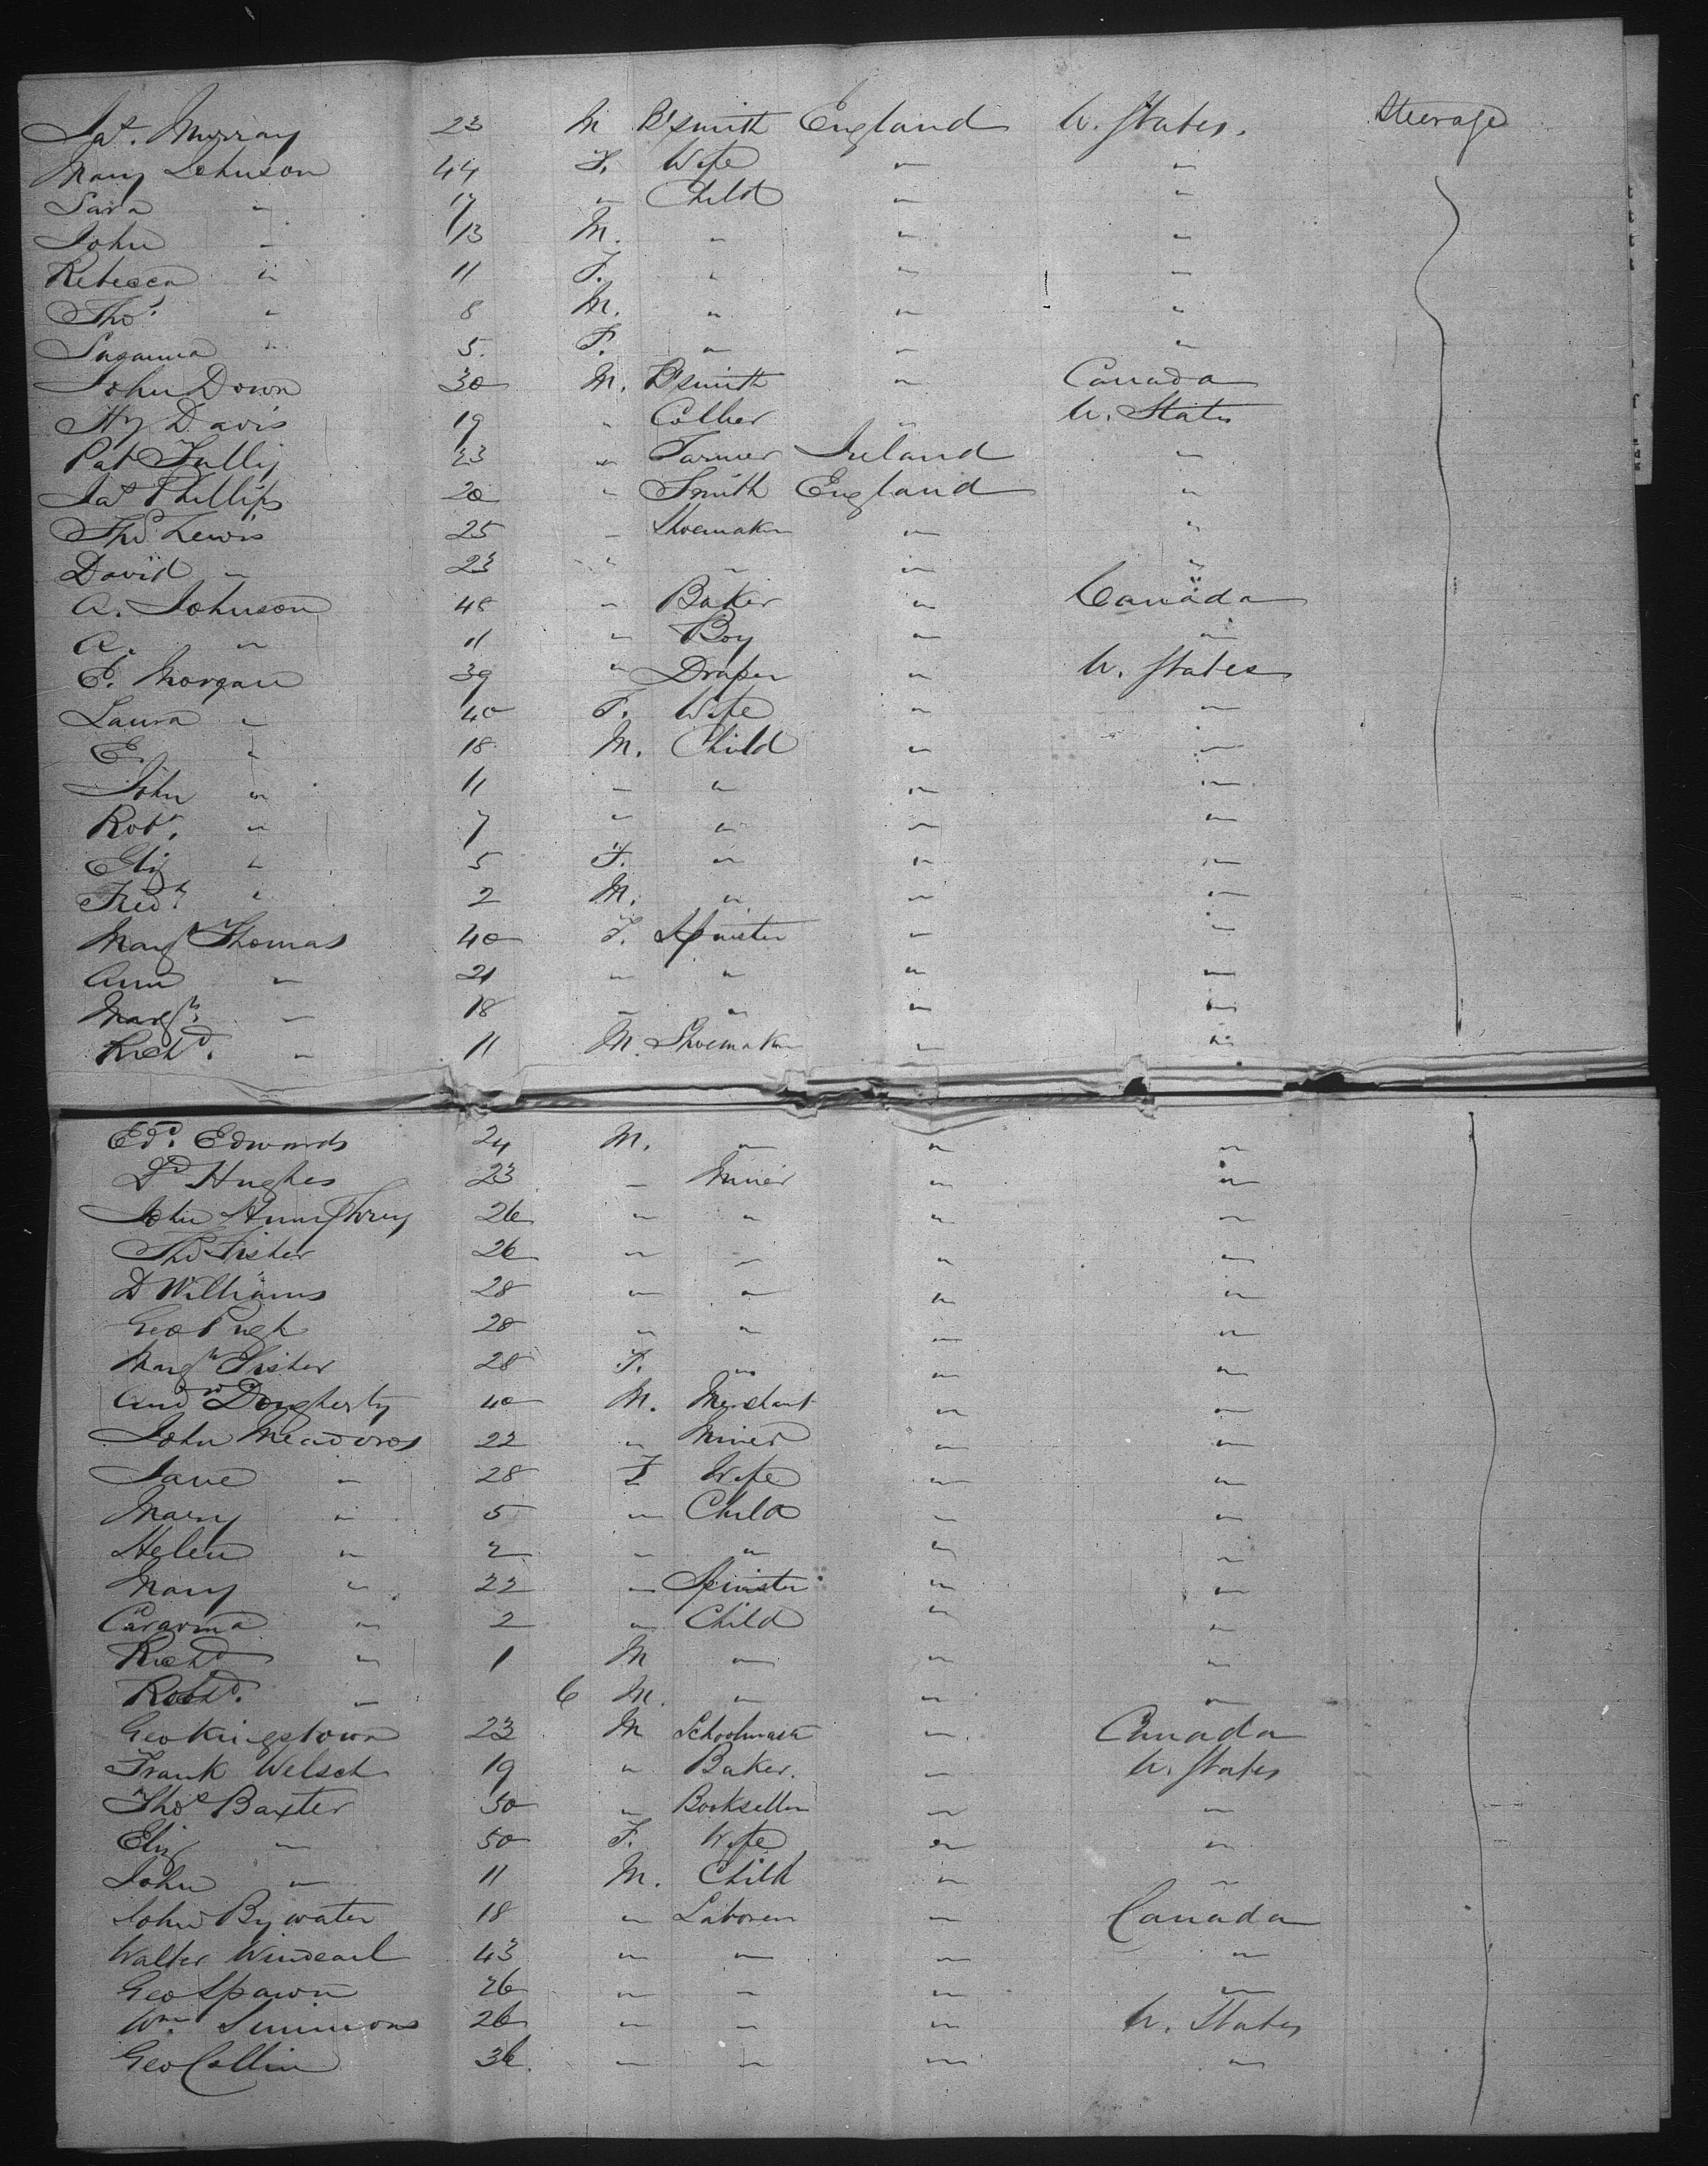 Jas. Murray 23 M B'smith England U. States. Steerage
Mary Johnson 44 F. Wife " "
Sara " 17 " Child " "
John " 13 M. " " "
Rebecca " 11 F. " " "
Thos. " 8 M. " " "
Susanna " 5. F. " " "
John Down 30 M. B'smith " Canada
Hy Davis 19 " Collier " U. States
Pat Tully 23 " Farmer Ireland "
Jas Phillips 20 " Smith England "
Thos Lewis 25 " Shoemaker " "
David " 23 " " " "
A. Johnson 48 " Baker " Canada
A. " 11 " Boy " "
E. Morgan 39 " Draper " U. States
Laura " 40 F. Wife " "
E. " 18 M. Child " "
John " 11 " " " "
Robt. " 7 " " " "
Eliz " 5 F. " " "
Fredk " 2 M. " " "
Margt Thomas 40 F. Spinster " "
Ann " 21 " " " "
Margt. " 18 " " " "
Richd. " 11 M. Shoemaker " "
Edd. Edwards 24 M. " " "
Dd Hughes 23 " Miner " "
John Humphrey 26 " " " "
Thos Fisher 26 " " " "
D Williams 28 " " " "
Geo Pugh 28 " " " "
Margt Fisher 28 F. " " "
Andw Dougherty 40 M. Merchant " "
John Meadows 22 " Miner " "
Jane " 28 F Wife " "
Mary " 5 " Child " "
Helen " 2 " " " "
Mary " 22 " Spinster " "
" 2 " Child " "
Richd " 1 M " " "
" 6 M. " " "
Geo Kingstown 23 M Schoolmastr " Canada
Frank Welsch 19 " Baker. " U. States
Thos Baxter 50 " Bookseller " "
Eliz " 50 F. Wife " "
John " 11 M. Child " "
John Bywater 18 " Laborer " Canada
Walter 43 " " " "
Geo Spawn 26 " " " "
Wm. Simmons 26 " " " U. States
Geo Collin 36. " " " "